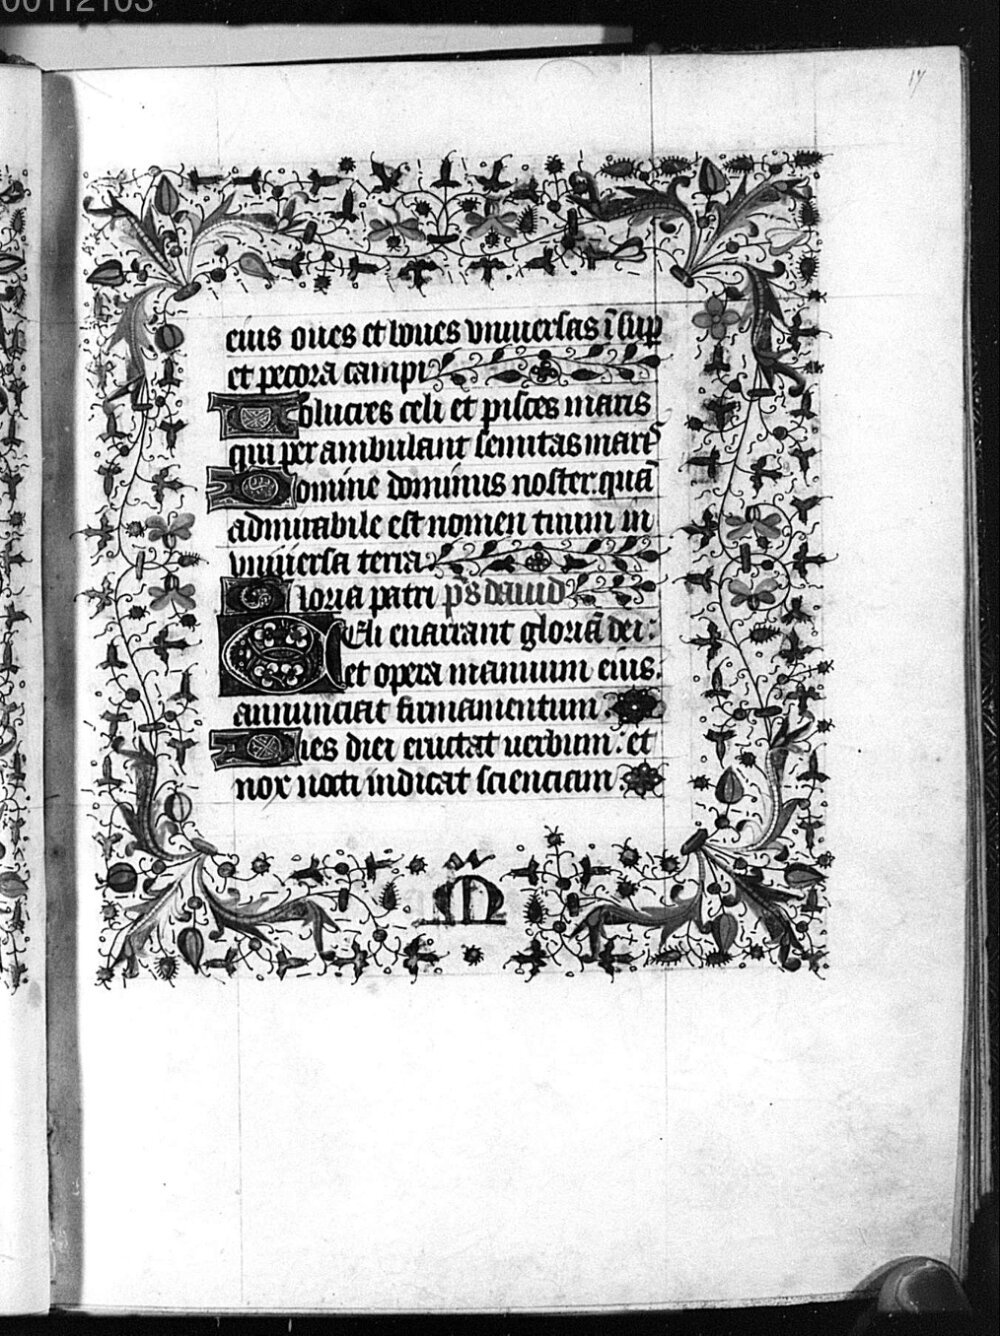 00112103
17
eius oues et boues vniuersas ĩ sup̱
et pecora campi
Uolucres celi et pisces maris
qui perambulant semitas mariˢ
Domine dominus noster quã
admirabile est nomen tuum in
vniuersa terra
Gloria patri p̃s dauid
Celi enarrant gloriã dei :
et opera manuum eius .
annunciat firmamentum .
Dies diei eructat uerbum : et
nox nocti indicat scienciam .
M̃